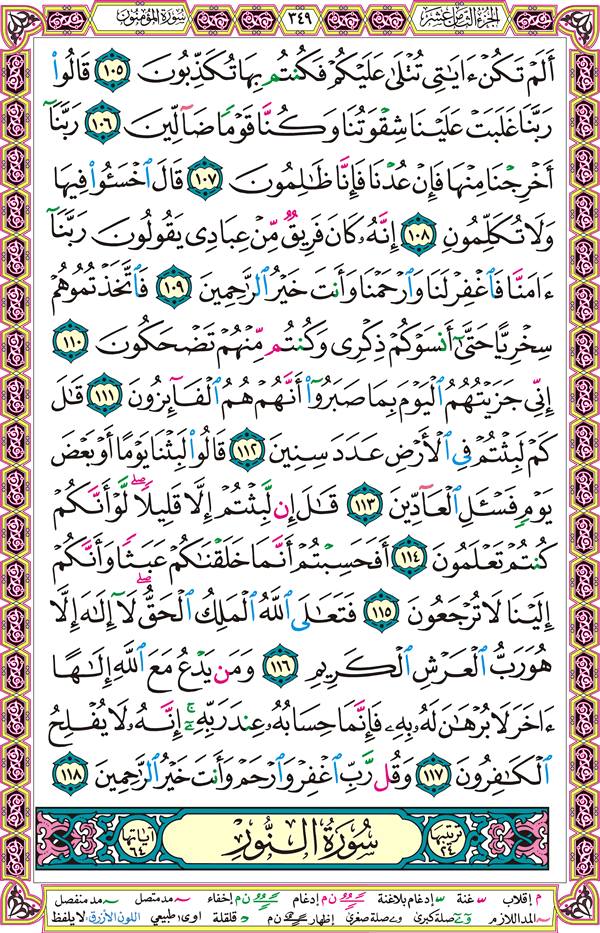 الجزء الثامن عشر ٣٤٩ سورة المؤمنون
أَلَمْ تَكُنْ ءَايَٰتِى تُتْلَىٰ عَلَيْكُمْ فَكُنتُم بِهَا تُكَذِّبُونَ ١٠٥ قَالُوا۟
رَبَّنَا غَلَبَتْ عَلَيْنَا شِقْوَتُنَا وَكُنَّا قَوْمًا ضَآلِّينَ ١٠٦ رَبَّنَآ
أَخْرِجْنَا مِنْهَا فَإِنْ عُدْنَا فَإِنَّا ظَٰلِمُونَ ١٠٧ قَالَ ٱخْسَـُٔوا۟ فِيهَا
وَلَا تُكَلِّمُونِ ١٠٨ إِنَّهُۥ كَانَ فَرِيقٌ مِّنْ عِبَادِى يَقُولُونَ رَبَّنَآ
ءَامَنَّا فَٱغْفِرْ لَنَا وَٱرْحَمْنَا وَأَنتَ خَيْرُ ٱلرَّٰحِمِينَ ١٠٩ فَٱتَّخَذْتُمُوهُمْ
سِخْرِيًّا حَتَّىٰٓ أَنسَوْكُمْ ذِكْرِى وَكُنتُم مِّنْهُمْ تَضْحَكُونَ ١١٠
إِنِّى جَزَيْتُهُمُ ٱلْيَوْمَ بِمَا صَبَرُوٓا۟ أَنَّهُمْ هُمُ ٱلْفَآئِزُونَ ١١١ قَٰلَ
كَمْ لَبِثْتُمْ فِى ٱلْأَرْضِ عَدَدَ سِنِينَ ١١٢ قَالُوا۟ لَبِثْنَا يَوْمًا أَوْ بَعْضَ
يَوْمٍ فَسْـَٔلِ ٱلْعَآدِّينَ ١١٣ قَٰلَ إِن لَّبِثْتُمْ إِلَّا قَلِيلًا ۖ لَّوْ أَنَّكُمْ
كُنتُمْ تَعْلَمُونَ ١١٤ أَفَحَسِبْتُمْ أَنَّمَا خَلَقْنَٰكُمْ عَبَثًا وَأَنَّكُمْ
إِلَيْنَا لَا تُرْجَعُونَ ١١٥ فَتَعَٰلَى ٱللَّهُ ٱلْمَلِكُ ٱلْحَقُّ ۖ لَآ إِلَٰهَ إِلَّا
هُوَ رَبُّ ٱلْعَرْشِ ٱلْكَرِيمِ ١١٦ وَمَن يَدْعُ مَعَ ٱللَّهِ إِلَٰهًا
ءَاخَرَ لَا بُرْهَٰنَ لَهُۥ بِهِۦ فَإِنَّمَا حِسَابُهُۥ عِندَ رَبِّهِۦٓ ۚ إِنَّهُۥ لَا يُفْلِحُ
ٱلْكَٰفِرُونَ ١١٧ وَقُل رَّبِّ ٱغْفِرْ وَٱرْحَمْ وَأَنتَ خَيْرُ ٱلرَّٰحِمِينَ ١١٨
ترتيبها ٢٤ سُورَةُ النُّورِ آياتها ٦٤
م إقلاب غنة إدغام بلاغنة ن م إدغام ن م إخفاء مد متصل مد منفصل
المد اللازم صلة كبرى صلة صغرى إظهار ن م قلقلة اوى طبيعي اللون الأزرق لا يلفظ